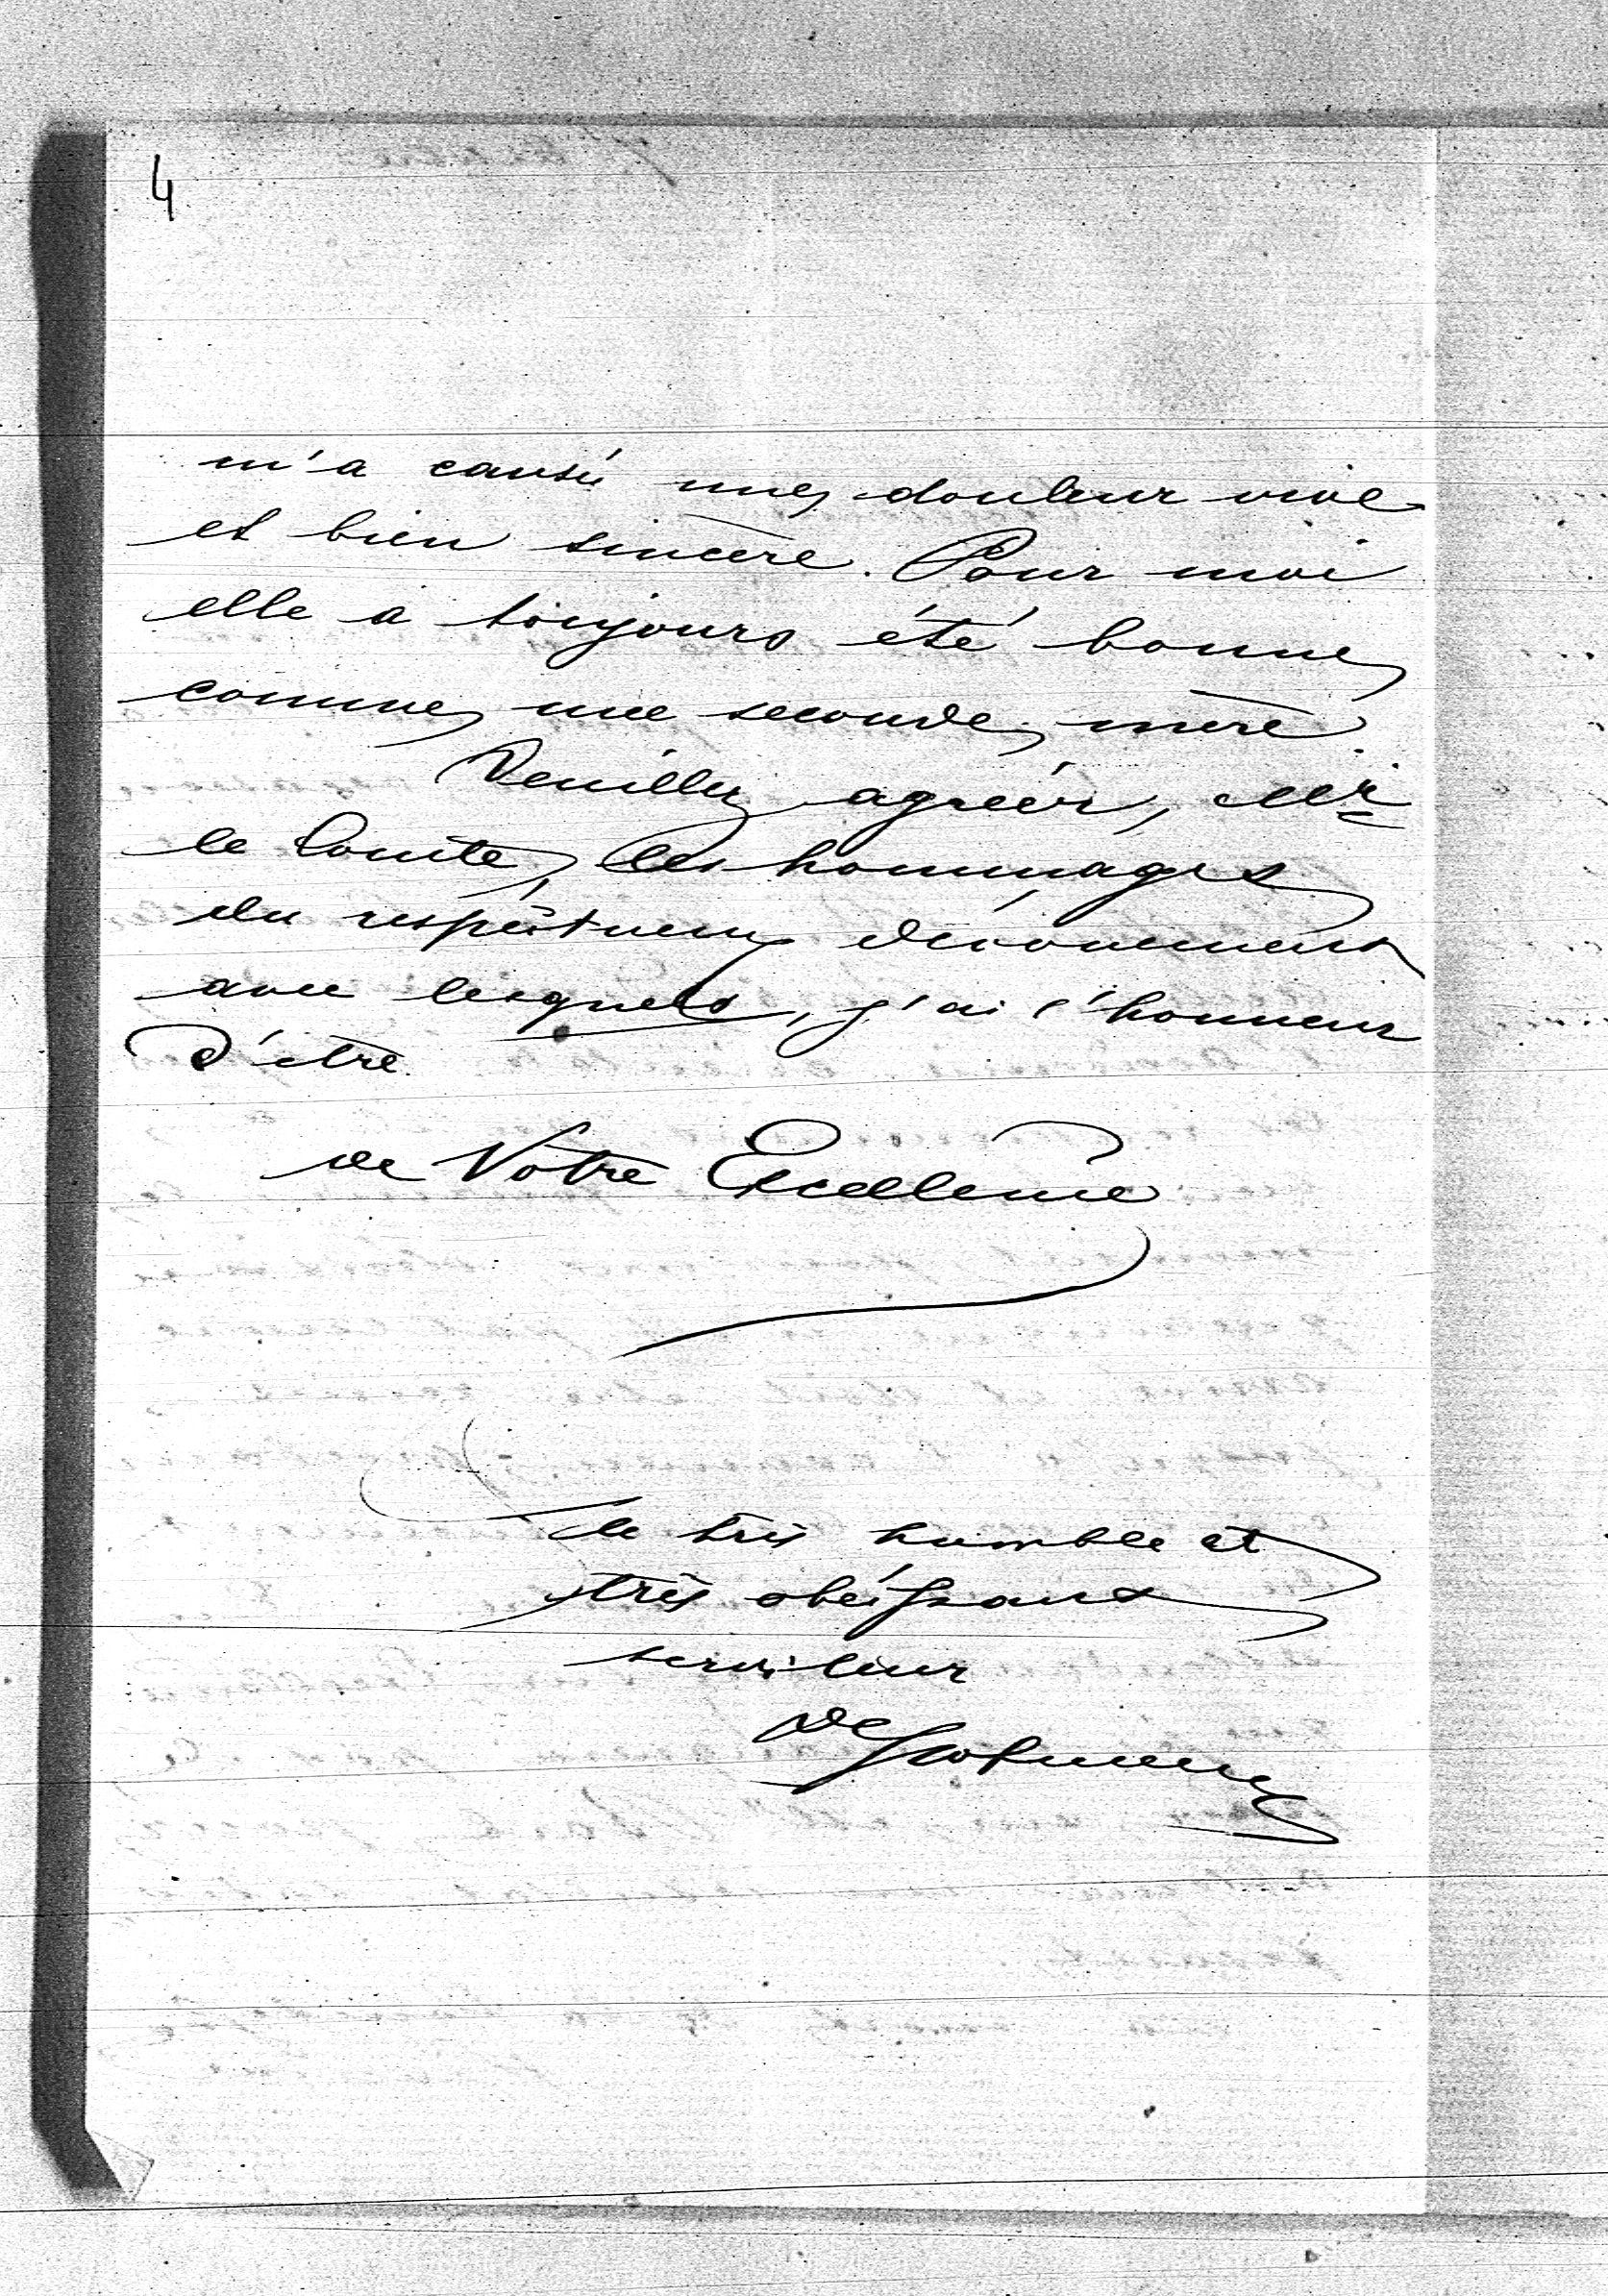 4
m'a causé une douleur vive
et bien sincère. Pour moi
elle a toujours été bonne
comme une seconde mère.
Veuillez agréer, Mr
le Comte, les hommages
du respectueux dévouement
avec lesquels, j'ai l'honneur
d'être
de Votre Excellence
le très humble et
très obéissant
serviteur